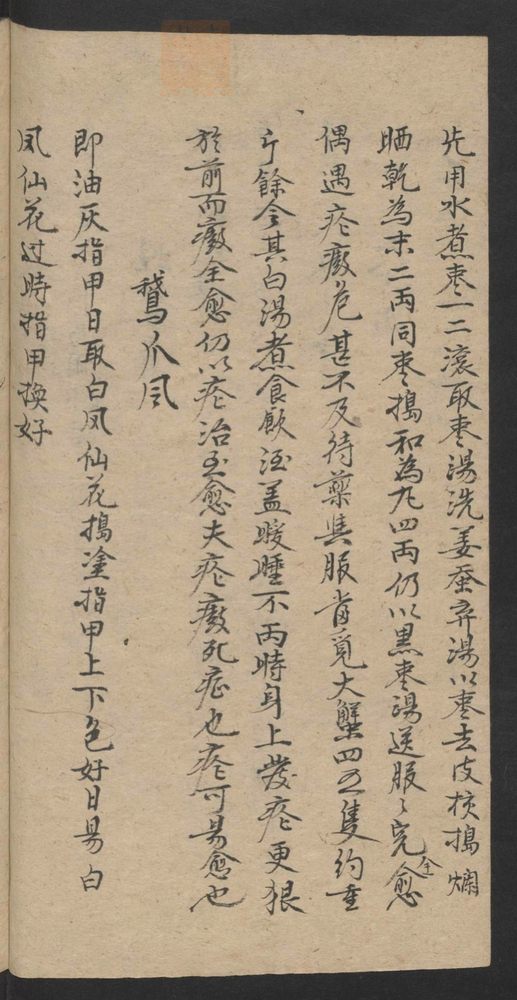 先用水煮枣一二滚取枣湯洗姜蚕弃湯以枣去皮核搗爛
晒乾為末二两同枣搗和為丸四两仍以黑枣湯送服〻完全愈
偶遇疙癞危甚不及待藥與服覓大蟹四五隻約重
斤餘令其白湯煮食飲酒盖暖睡不两時身上發疙更狠
於前而癞全愈仍以疙治至愈夫疙癞死症也疙可易愈也
鵞爪风
即油灰指甲日取白凤仙花搗塗指甲上下包好日易白
凤仙花过時指甲換好